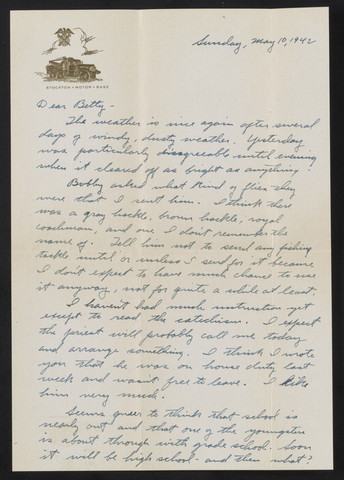 Sunday, May 10, 1942
STOCKTON • MOTOR • BASE
Dear Betty -
The weather is nice again after several
days of windy, dusty weather. Yesterday
was particularly disagreeable until evening
when it cleared off as bright as anything!
Bobby asked what kind of flies they
were that I sent him. I think there
was a gray hackle, brown hackle, royal
coachman, and one I don't remember the
name of. Tell him not to send any fishing
tackle until or unless I send for it because
I don't expect to have much chance to use
it anyway, not for quite a while at least.
I haven't had much instruction yet
except to read the catechism. I expect
the priest will probably call me today
and arrange something. I think I wrote
you that he was on house duty last
week and wasn't free to leave. I like
him very much.
Seems queer to think that school is
nearly out and that one of the youngsters
is about through with grade school. Soon
it will be high school - and then what?